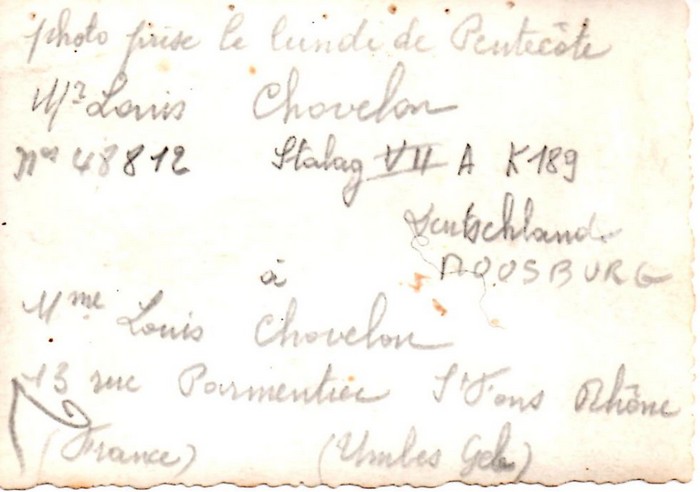 photo prise le lundi de Pentecôte
Mr Louis Chovelon
nos 48812 Stalag VII A K189
Deutschland
MOOSBURG
à
Mme Louis Chovelon
13 rue Parmentier St Fons Rhône
(France) (Umbes Geb)